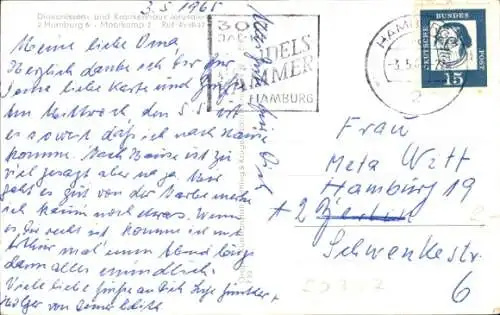 3.5.1965
Diakonissen- und Krankenhaus Jerusalem
2 Hamburg 6 - Moorkamp 2
Meine liebe Oma
Herzlich danke ich Dir für
Deine liebe Karte und Grüße
Am Mittwoch, den 5.5. ist
es soweit daß ich nach Hause
komme. Nach Hause ist zu
viel gesagt aber na ja. Mir
geht es gut von der Narbe merke
ich kaum noch etwas. Wenn
es Dir recht ist, komme ich mit
mal einen Abend längs
dann alles mündlich.
Viele liebe Grüße an Dich
von Deiner
300
HANDELS
KAMMER
HAMBURG
HAMBURG
2
DEUTSCHE BUNDESPOST
15
Frau
Meta Witt
2 Hamburg 19
Schwenckestr.
6